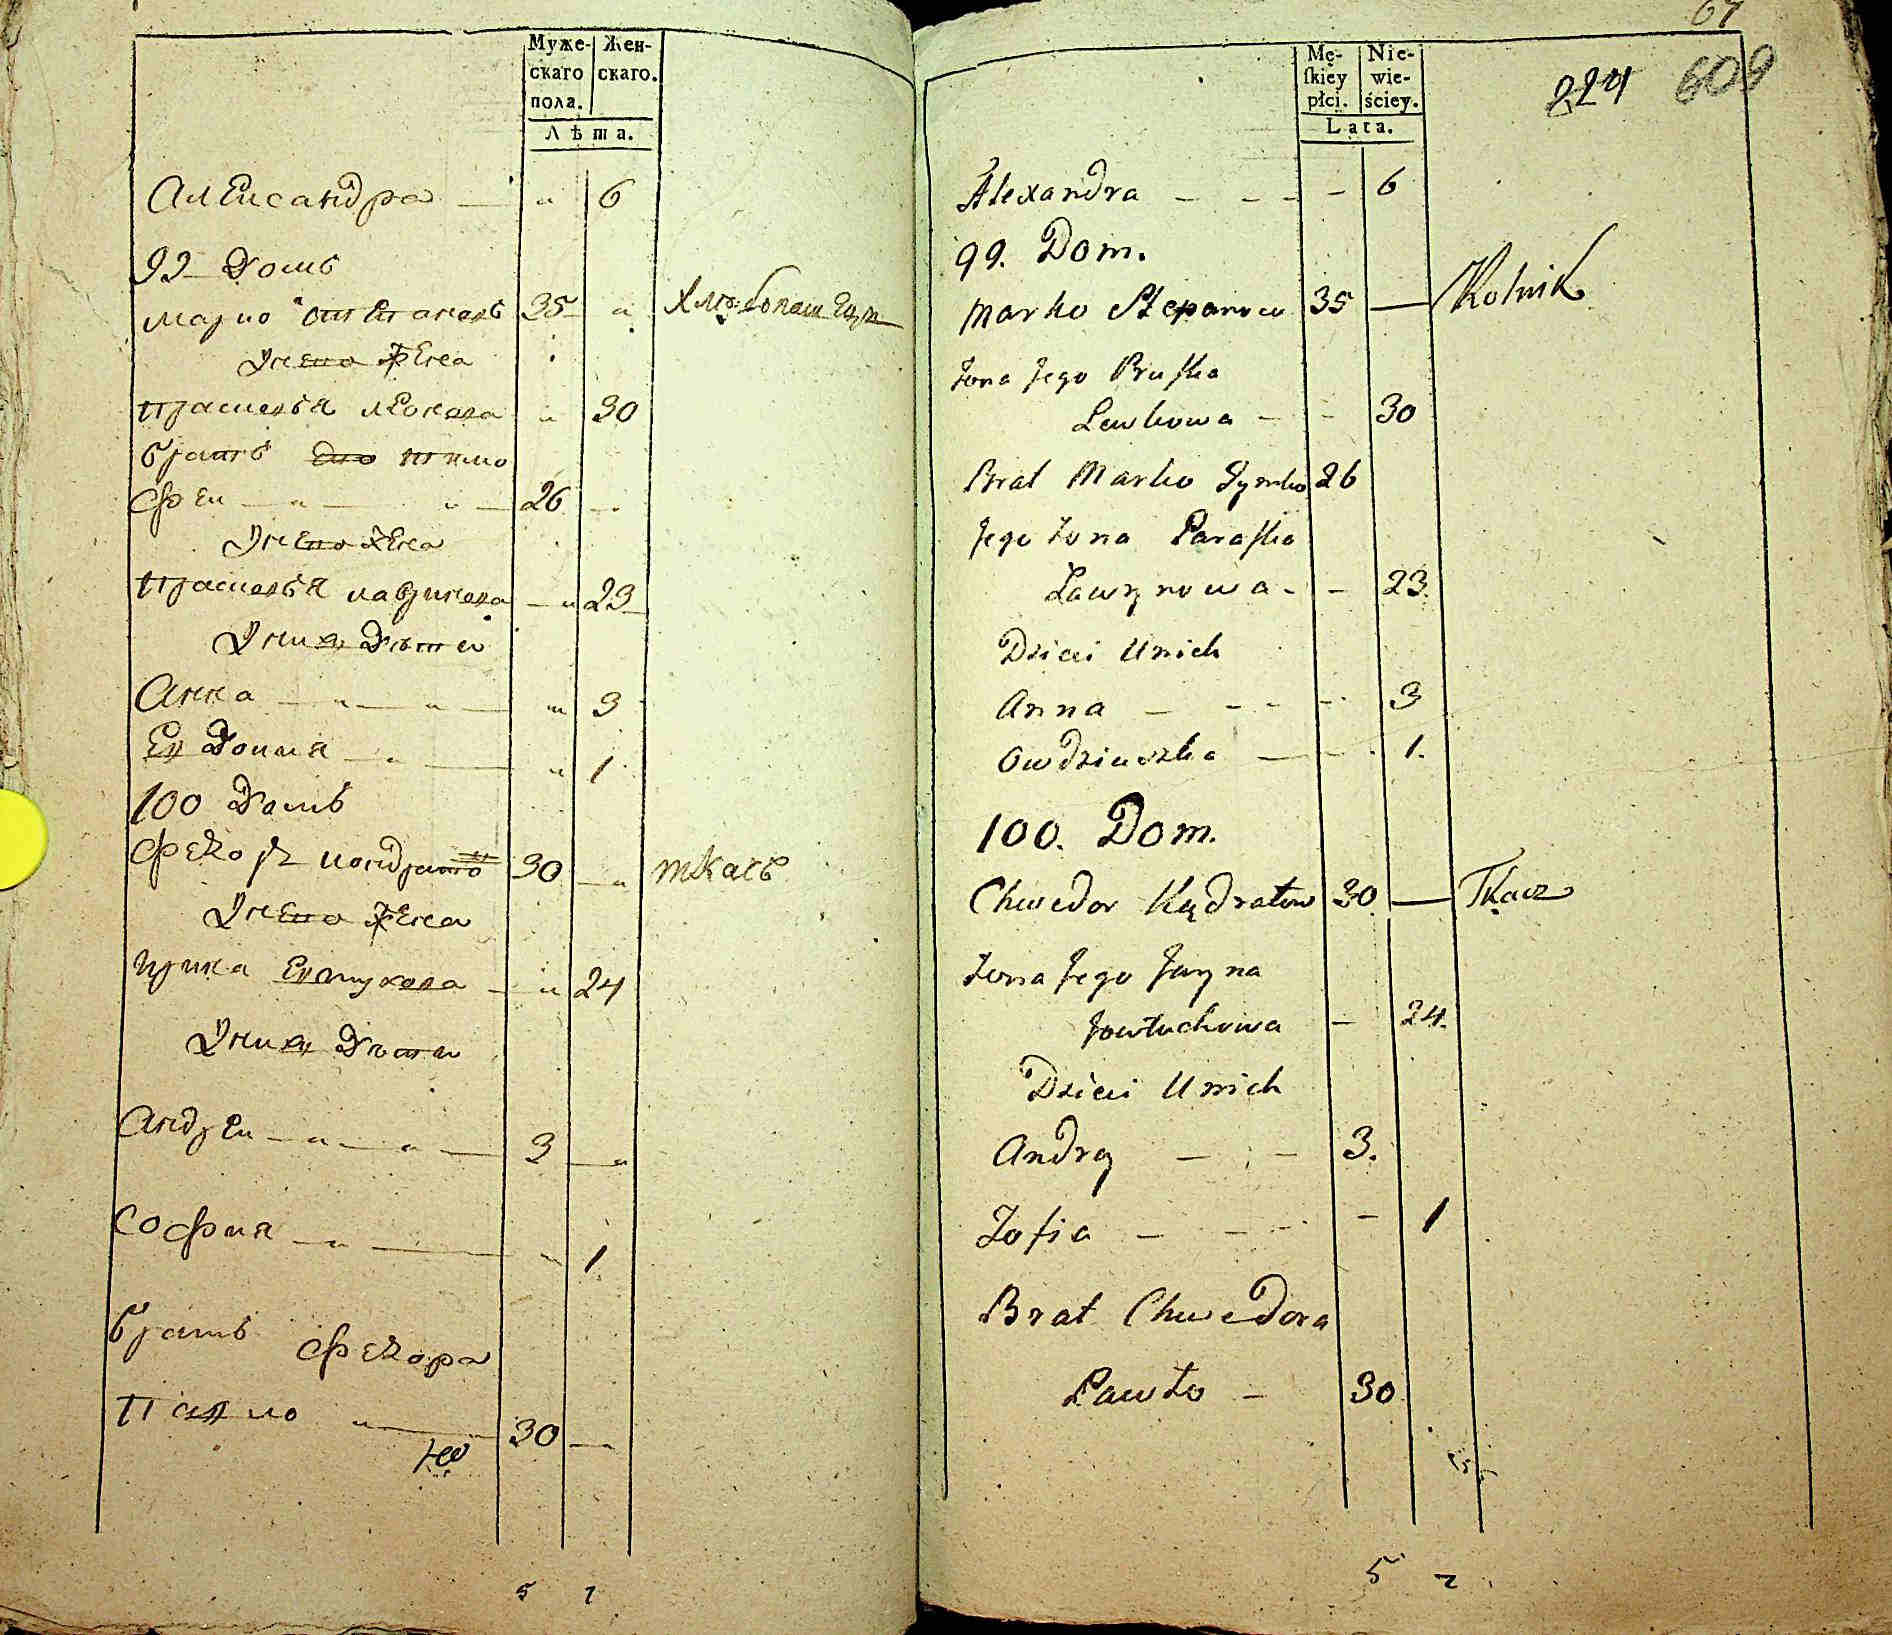 Муже- Жен-
скаго скаго.
пола.
Лѣта.
Александра — " 6
99 Домъ
Марко Степановъ 35 " Хлѣбопашецъ
У него жена
Прасковья Левкова " 30
братъ его Тимо
фей — " — " — 26 —
У него жена
Прасковья лавринова — " 23
У них дѣти
Анна — " — " — " 3
Евдокия — " — " 1
100 Домъ
Федоръ кондратовъ 30 — " ткачь
У него жена
ирина Евтухова — " 24
У них Дѣти
Андрей — " — " — 3 — "
София — " — " 1
братъ Федора
Павло " — 30 —
5 7
67
224 609
Mę- Nie-
ſkiey wie-
płci. ściey.
Lata.
Alexandra — — — — 6
99. Dom.
Marko Stepanow 35 — Rolnik
Żona Jego Pruſka
Lewkowa — — 30
Brat Marko Tymko 26
Jego Żona Paraſka
Lawrynowa - — 23.
Dzieci U nich
Anna — - - - — 3
Owdziuszka — — - 1.
100. Dom.
Chwedor Kądratow 30 — Tkacz
Żona Jego Jryna
Jowtuchowa — 24.
Dzieci U nich
Andry — - — 3.
Zofia — — - — 1
Brat Chwedora
Pawło — 30
5 7